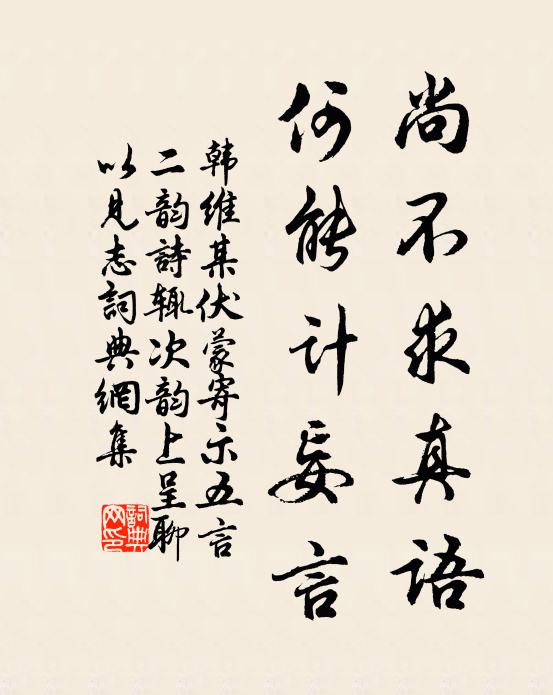 尚不求真语
何能计妄言
韩维某伏蒙寄示五言
二韵詩辄次韵上呈聊
以見志詞典網集
詞典网印